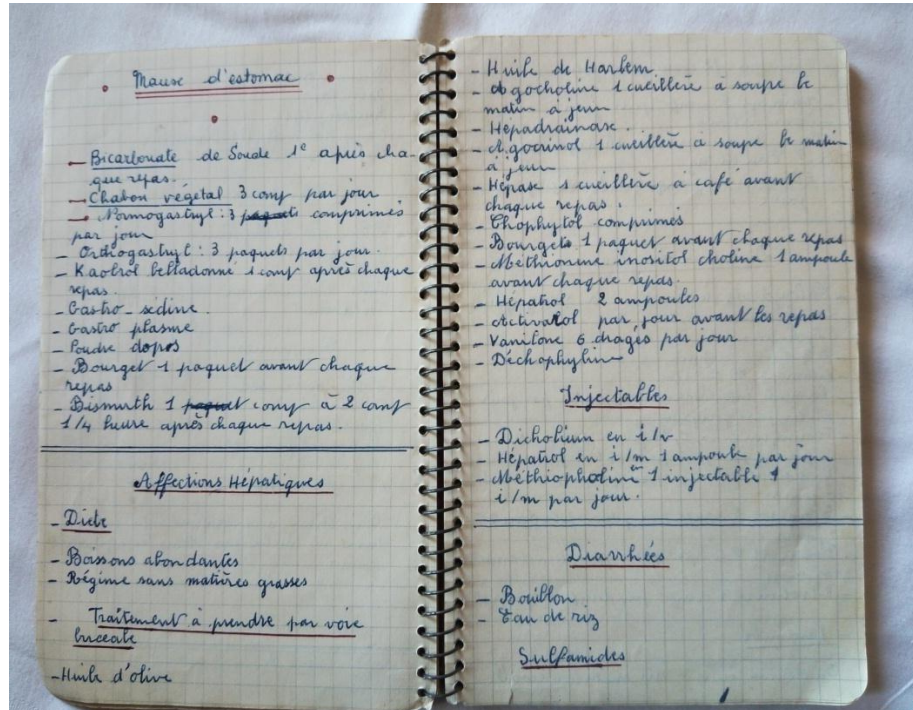 Mause d'estomac
- Bicarbonate de Soude 1c après cha-
que repas.
- Chabon végétal 3 comp par jour
- Normogastryl : 3 comprimés
par jour
- Orthogastryl : 3 paquets par jour.
- Kaobrol belladonne 1 comp après chaque
repas.
- Gastro-sédine.
- Gastro plasme
- Poudre dopos
- Bourget 1 paquet avant chaque
repas
- Bismuth 1 comp à 2 comp
1/4 heure après chaque repas.
Affections Hépatiques
- Diète
- Boissons abondantes
- Régime sans matières grasses
- Traitement à prendre par voie
buccale
- Huile d'olive
- Huile de Harlem
- Agocholine 1 cueillère à soupe le
matin à jeun
- Hépadrainase.
- Agocainol 1 cueillère à soupe le matin
à jeun
- Hépase 1 cueillère à café avant
chaque repas.
- Chophytol comprimés
- Bourgets 1 paquet avant chaque repas
- Méthionine inositol choline 1 ampoule
avant chaque repas
- Hépatrol 2 ampoules
- Activarol par jour avant les repas
- Vanitone 6 dragés par jour
- Déchophyline
Injectables
- Dicholium en i/v
- Hépatrol en i/m 1 ampoule par jour
- Méthiopholine 1 injectable
i/m par jour.
Diarrhées
- Bouillon
- Eau de riz
Sulfamides